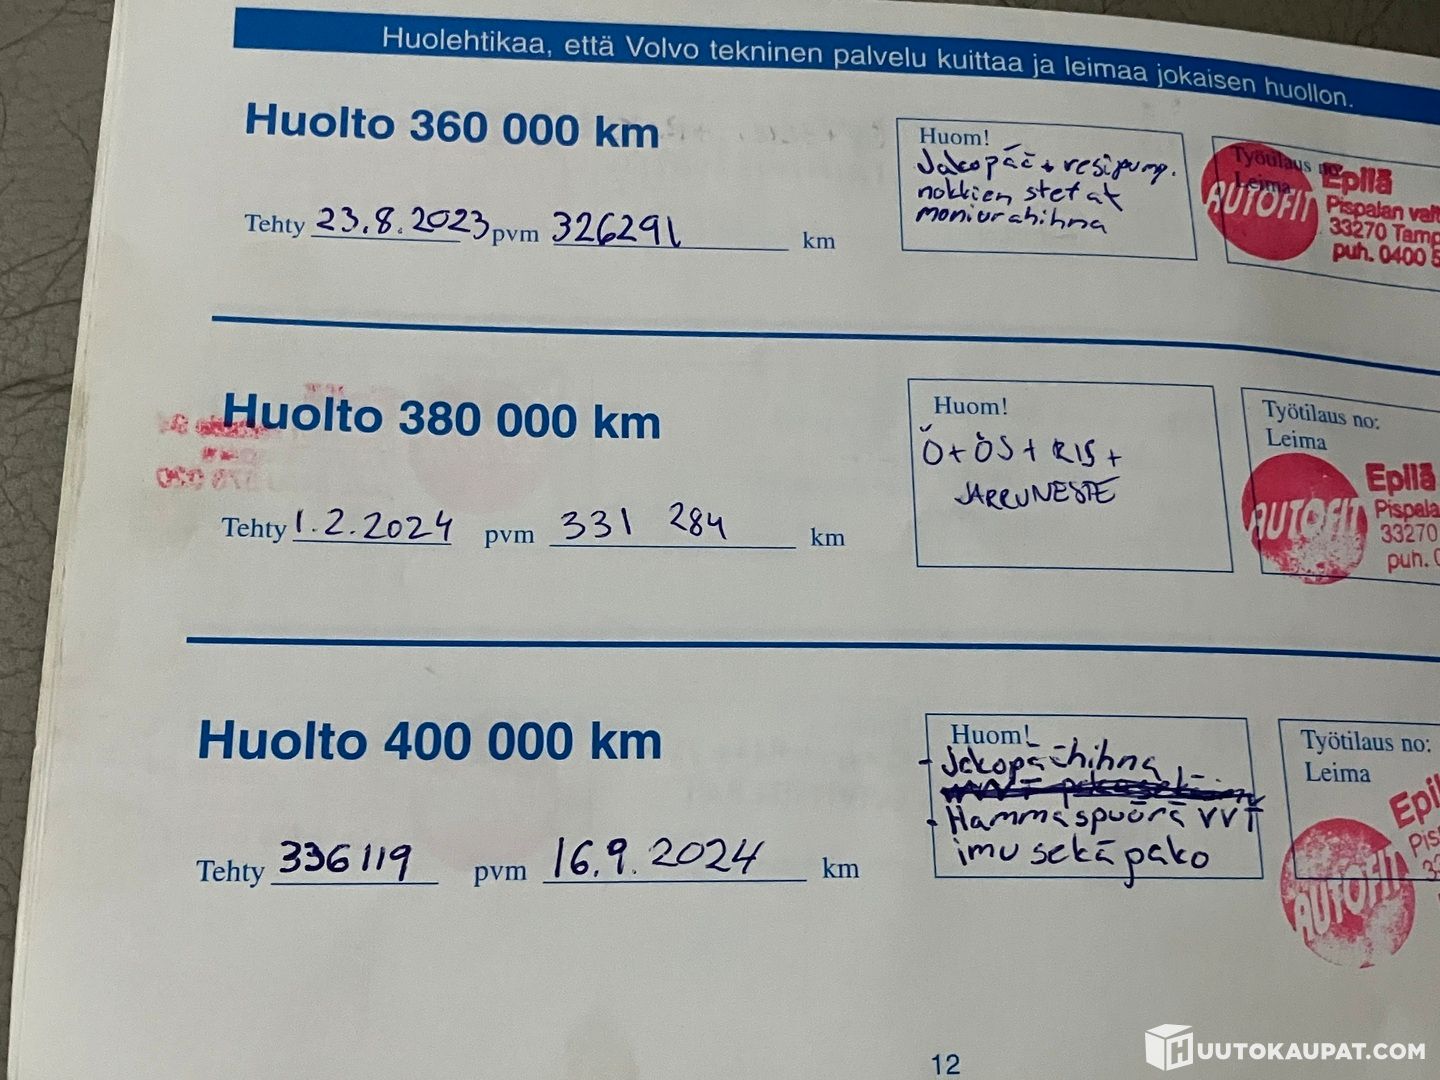 Huolehtikaa, että Volvo tekninen palvelu kuittaa ja leimaa jokaisen huollon.
Huolto 360 000 km
Tehty 23.8.2023 pvm 326291 km
Huom!
Jakopää + vesipump.
nokkien stefat
moniurahihna
Työtilaus no:
Leima
AUTOFIT
Epilä
Pispalan valt
33270 Tamp
puh. 0400 5
Huolto 380 000 km
Tehty 1.2.2024 pvm 331 284 km
Huom!
Ö+ÖS+RIS+
JARRUNESTE
Työtilaus no:
Leima
AUTOFIT
Epilä
Pispala
33270
puh. 0
Huolto 400 000 km
Tehty 336119 pvm 16.9.2024 km
Huom!
- Jakopäähihna
- Hammaspyörä VVT
imu sekä pako
Työtilaus no:
Leima
AUTOFIT
Epil
Pis
33
12
HUUTOKAUPAT.COM